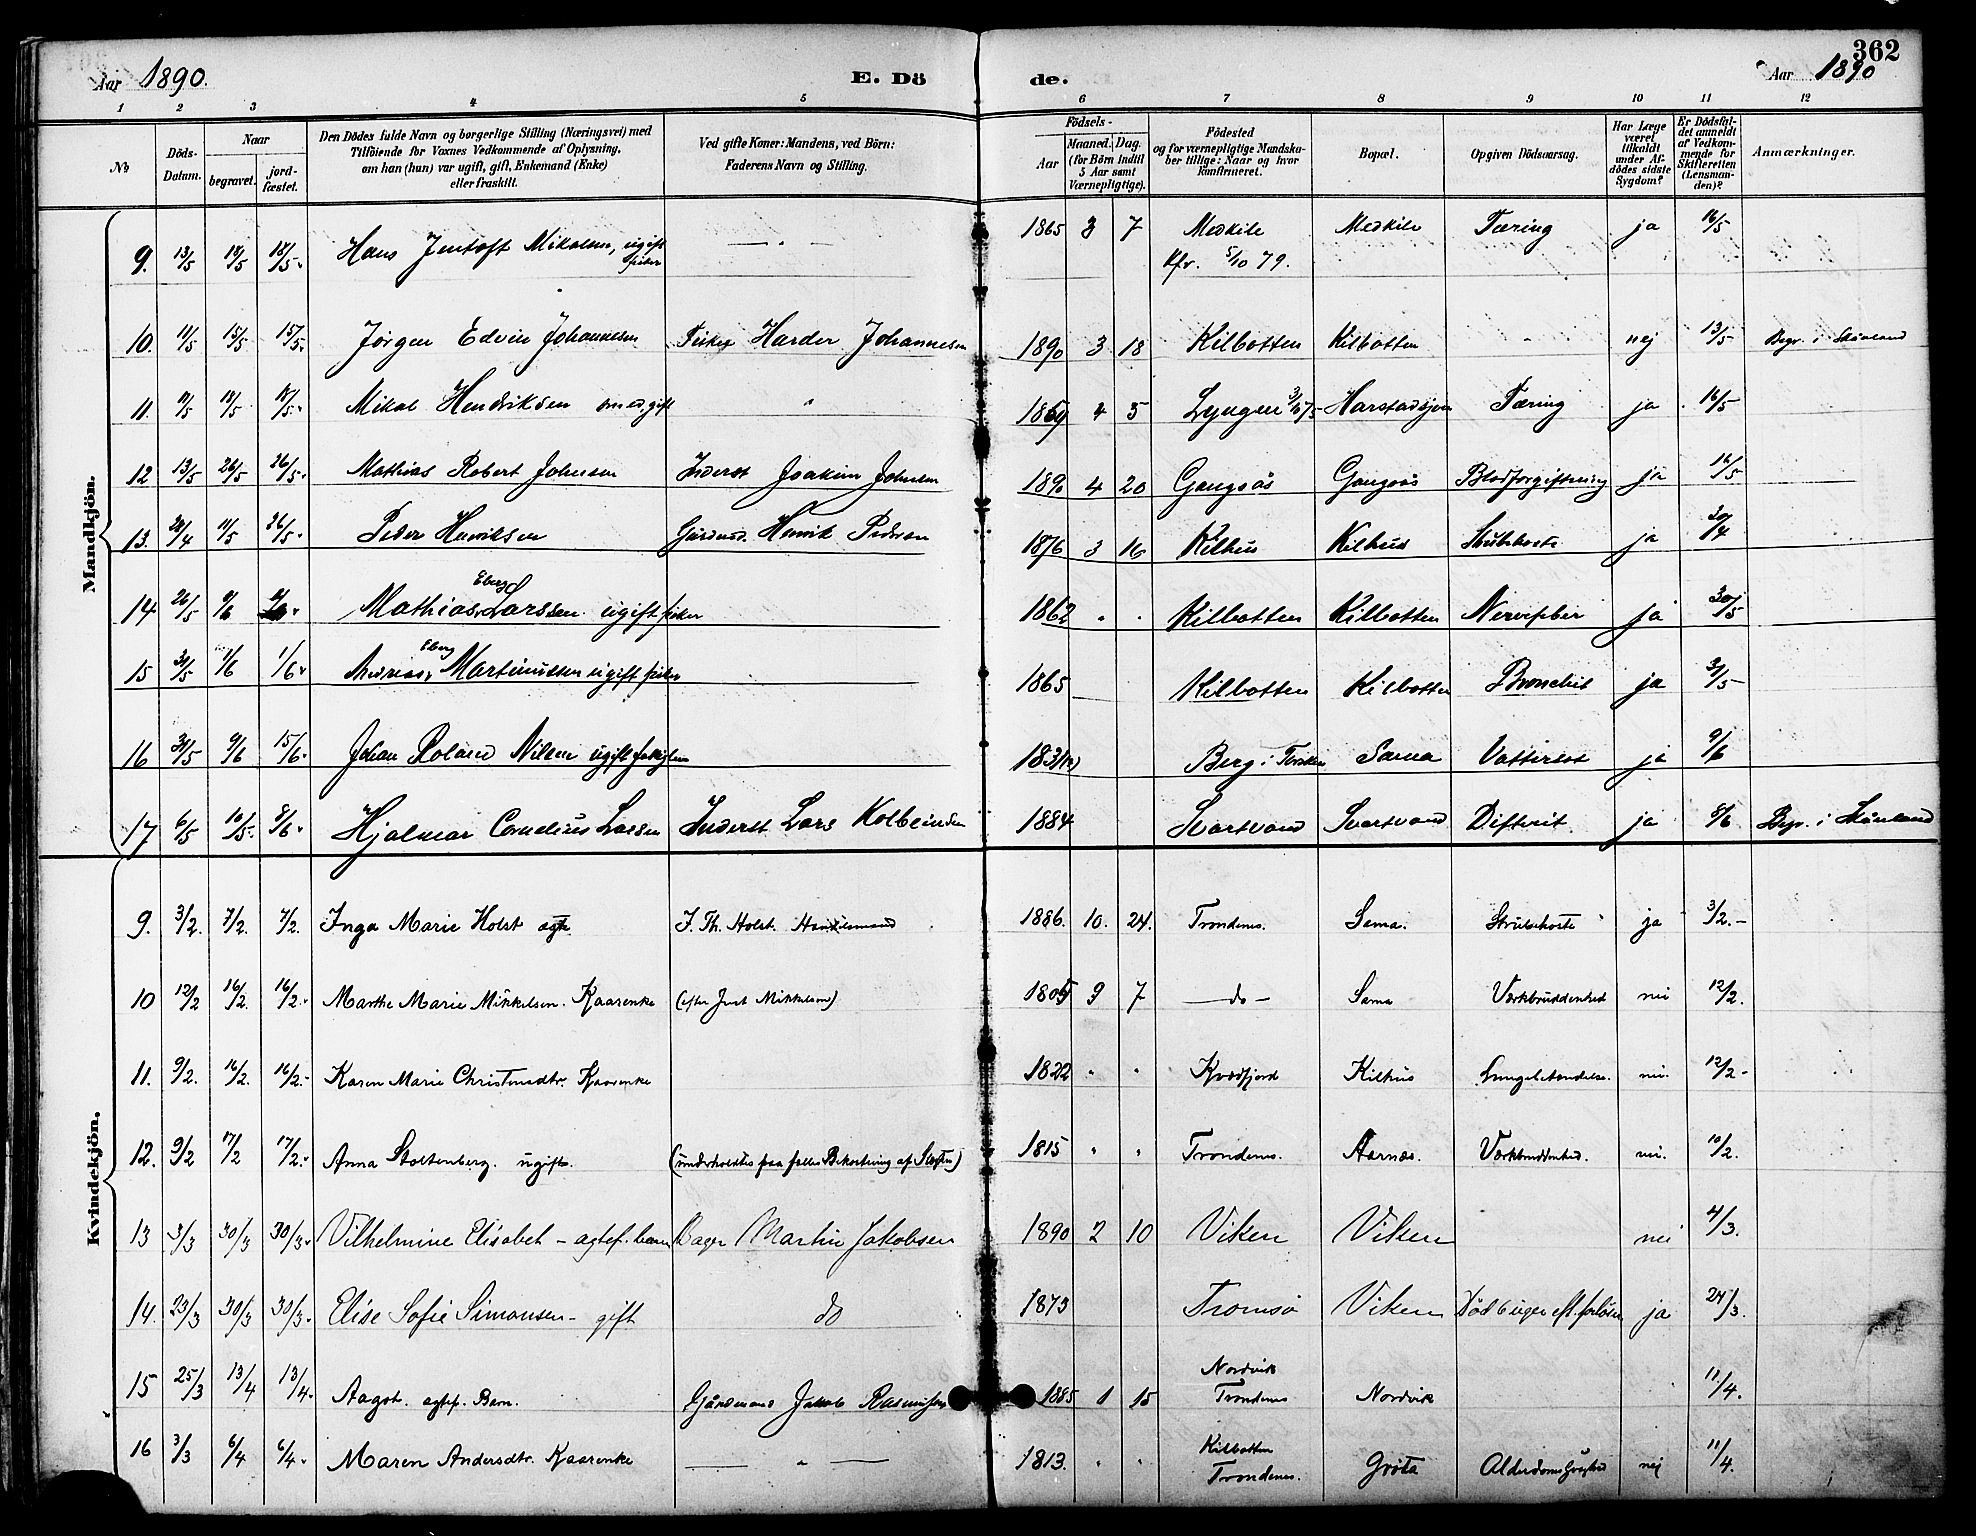 362
Aar 1890.
E. Dö de.
Aar 1890
1 2 3 4 5 6 7 8 9 10 11 12
No
Döds-Datum.
Naar begravet. jordfæstet.
Den Dödes fulde Navn og borgerlige Stilling (Næringsvei) med Tilföiende for Voxnes Vedkommende af Oplysning, om han (hun) var ugift, gift, Enkemand (Enke) eller fraskilt.
Ved gifte Koner: Mandens, ved Börn: Faderens Navn og Stilling.
Födsels-
Aar Maaned. Dag. (for Börn indtil 5 Aar samt Værnepligtige).
Födested og for værnepligtige Mandskaber tillige: Naar og hvor konfirmeret.
Bopæl.
Opgiven Dödsaarsag.
Har Læge været tilkaldt under Afdödes sidste Sygdom?
Er Dödsfaldet anmeldt af Vedkommende for Skifteretten (Lensmanden)?
Anmærkninger.
Mandkjön.
9. 13/5 18/5 18/5. Hans Jentoft Mikalsen, ugift fisker — " — 1865 3 7 Medkile Medkile Tæring ja 16/5
Kfr. 5/10 79.
10. 11/5 15/5 15/5. Jørgen Edvin Johannesen Fisker Harder Johannesen 1890 3 18 Kilbotten Kilbotten " nej 13/5 Begr. i Skånland
11. 11/5 18/5 18/5. Mikal Hendriksen gift " 1859 4 5 Lyngen Harstadsjøen Tæring ja 16/5
12 13/5 26/5 26/5. Mathias Robert Johnsen Inderst Joakim Johnsen 1890 4 20 Gangsås Gangsås Blodforgiftning ja 16/5
13. 28/4 11/5 26/5. Peder Henriksen Gårdmd. Henrik Pedersen 1876 3 16 Kilhus Kilhus Strubehoste ja 30/4
14 26/5 9/6 Mathias Eberg Larssen ugift fisker 1862 " " Kilbotten Kilbotten Nervefeber ja 30/5
15 31/5 1/6 1/6. Andreas Eberg Martinussen ugift fisker 1865 Kilbotten Kilbotten Bronchit ja 31/5
16 31/5 9/6 15/6. Johan Roland Nilsen ugift Berg i Torsken Sama Vattersot ja 9/6
17 6/5 10/5. 8/6. Hjalmar Cornelius Larsen Inderst Lars Kolbeinsen 1884 Svartvand Svartvand Difterit. ja 8/6 Begr. i Skånland
Kvindekjön.
9. 3/2. 7/2. 7/2. Inga Marie Holst ægte. J. Th. Holst. Handelsmand 1886. 10. 24. Trondenes. Sama. Strubehoste ja 3/2.-
10 12/2 16/2. 16/2. Marthe Marie Mikkelsen. Kaarenke (efter Jent Mikkelsen) 1805 9 7 — do — Sama Værkbruddenhed nei 12/2.
11. 9/2. 16/2. 16/2.- Karen Marie Christensdtr. Kaarenke 1822 " " Kvædfjord Kilhus Lungebetændelse. nei. 12/2-
12. 9/2 17/2 17/2. Anna Stoltenberg. ugift. (underholdtes paa fælles Bekostning af Slægten) 1815 " " Trondenes. Aarnes. Værkbruddenhed. nei. 10/2.
13 3/3 30/3 30/3. Vilhelmine Elisabet – agtef. barn Bager Martin Jakobsen 1890 2 10 Viken Viken nei 4/3.
14. 23/3 30/3 30/3. Elise Sofie Simonsen – gift do 1873 Tromsø Viken Død 6 uger eft. forløsn ja 24/3.
15 25/3 13/4 13/4. Aagot. agtef. Barn. Gårdmand Jakob Rasmussen 1885 1 15 Nordvik Trondenes Nordvik 11/4.
16 3/3 6/4 6/4. Maren Andersdtr. Kaarenke — " — 1813. " " Kilbotten Trondenes. Grøta Alderdomssvaghed nej 11/4.